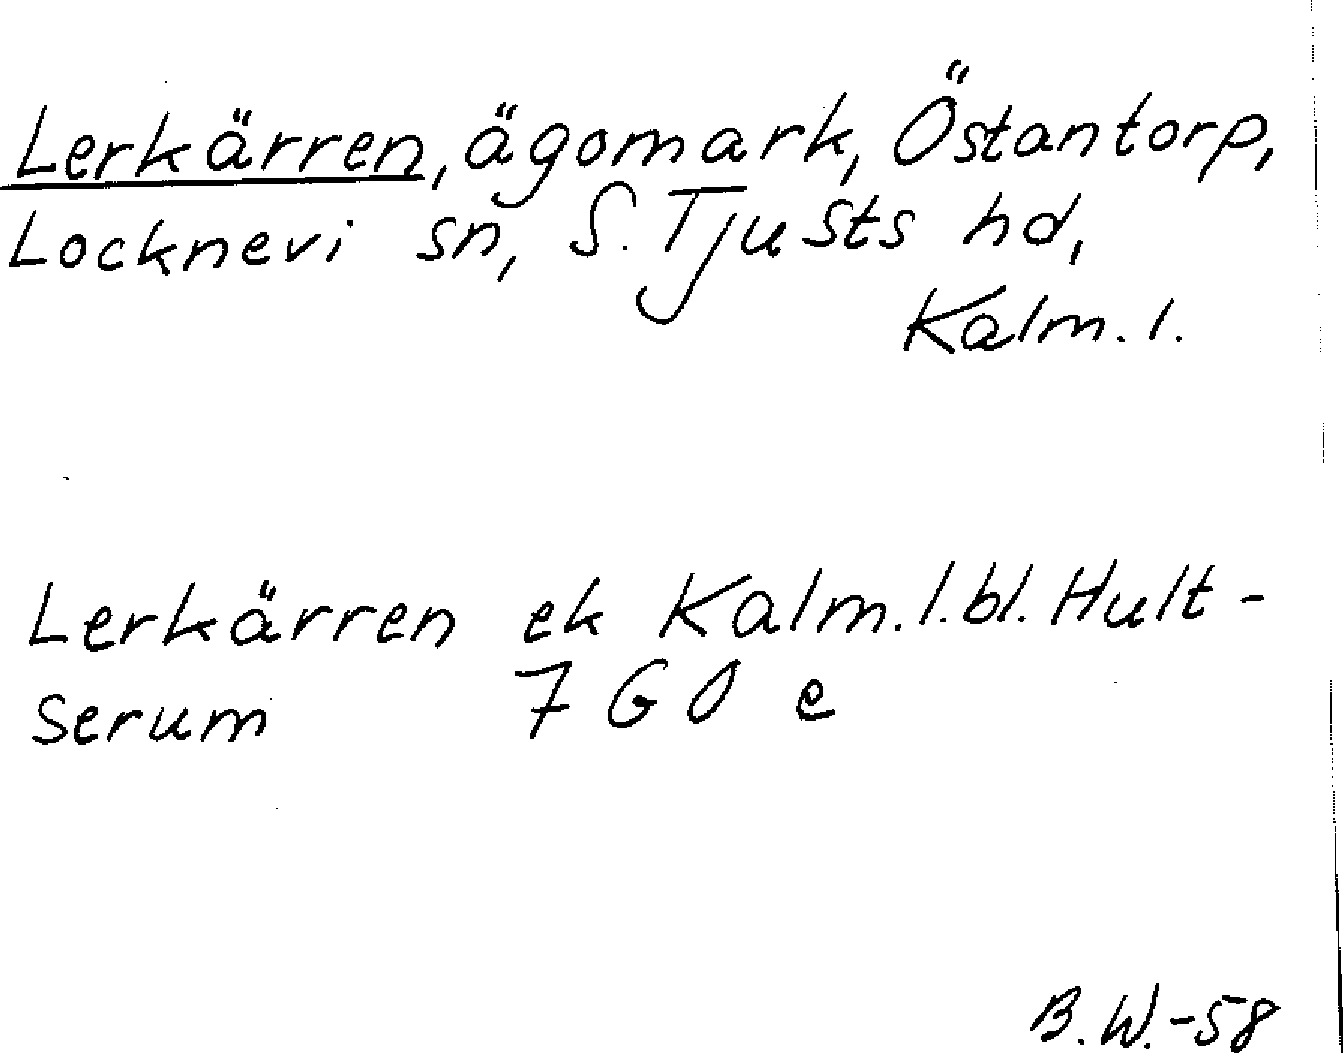 Lerkärren, ägomark, Östantorp,
Locknevi sn, S. Tjusts hd,
Kalm. l.
Lerkärren ek Kalm. l. bl. Hult-
serum 7 G 0 e
B. W. -58